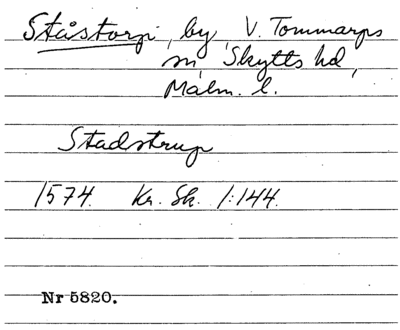 Ståstorp, by, V. Tommarps
sn, Skytts hd,
Malm. l.
Stadstrup
1574. Kr. Sk. 1:144.
Nr 5820.